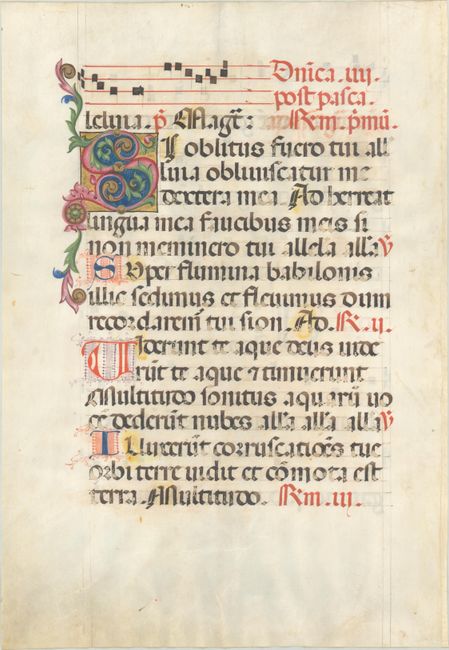 Dnica. iiij.
post pasca.
leluia. p̄ Magt̄: Rm̄. p̄mū.
SI oblitus fuero tui all
luia obliuiscatur me
dextera mea. Adhereat
lingua mea faucibus meis si
non meminero tui allela alla ℣
SVper flumina babilonis
illic sedimus et fleuimus dum
recordaremur tui sion. Ad. R. ii.
VIderunt te aque deus uide
rūt te aque ⁊ timuerunt
Multitudo sonitus aquarū uo
cē dederūt nubes alla alla alla ℣
ILluxerūt corruscatiōes tue
orbi terre uidit et cōmota est
terra. Multitudo. Rm. iij.